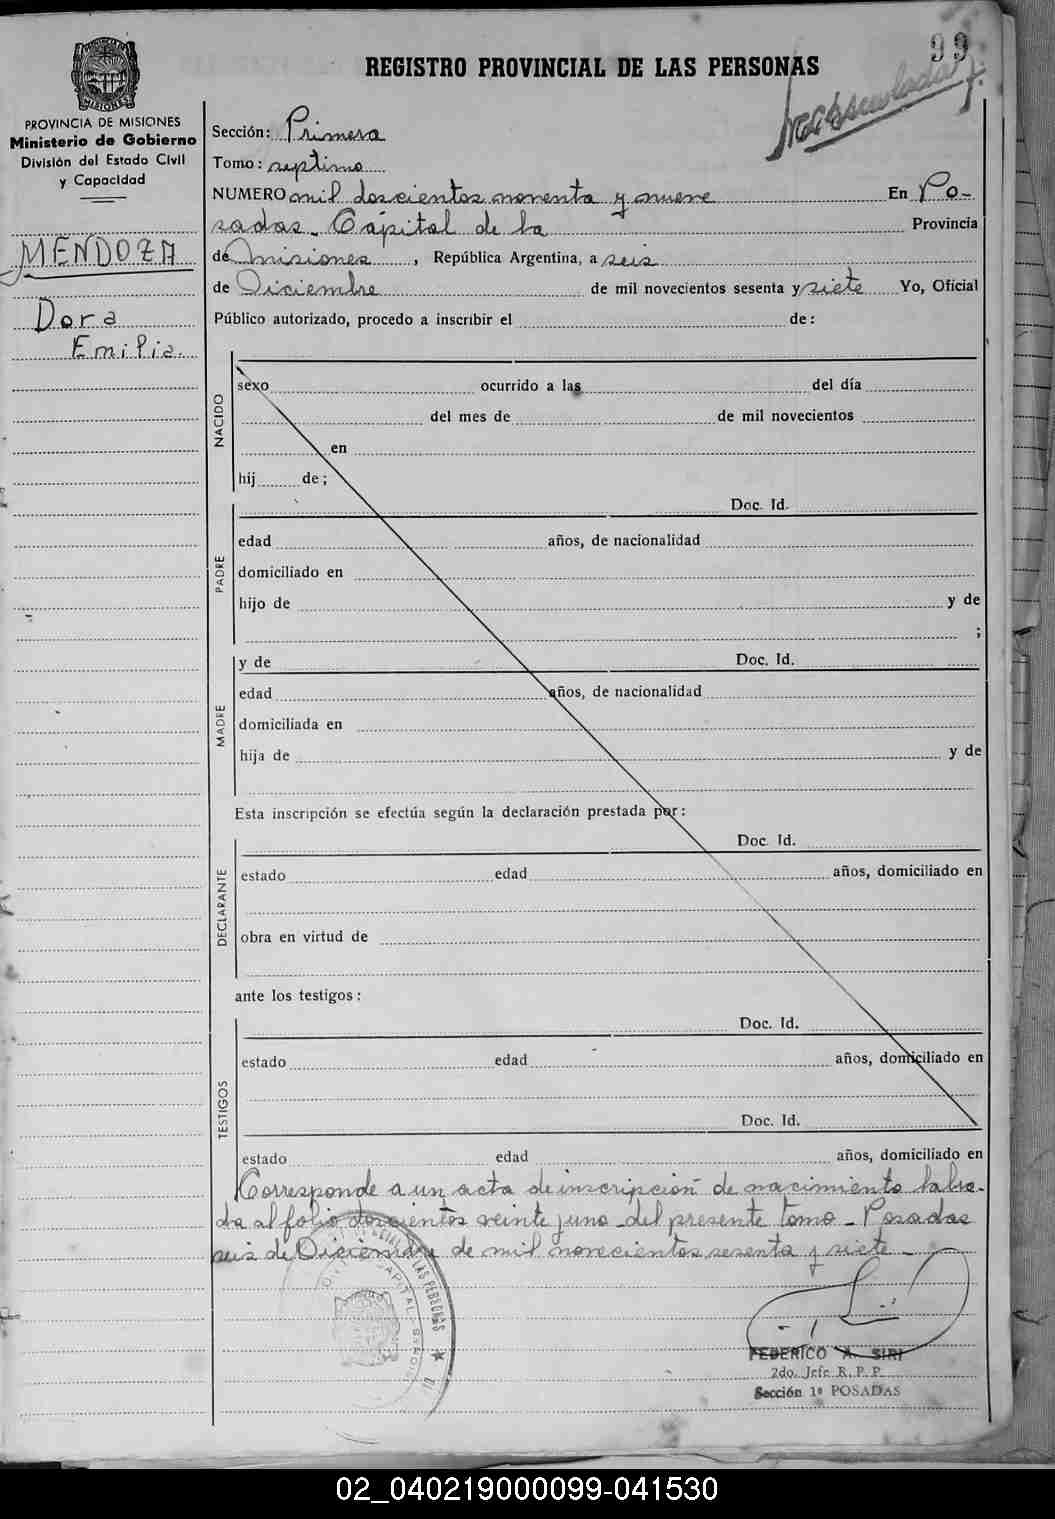 99
REGISTRO PROVINCIAL DE LAS PERSONAS
PROVINCIA DE MISIONES
Ministerio de Gobierno
División del Estado Civil
y Capacidad
MENDOZA
Dora
Emilia.
Sección: Primera
Tomo: septimo
NUMERO mil doscientos noventa y nueve En Po-
sadas - Cápital de la Provincia
de Misiones, República Argentina, a seis
de Diciembre de mil novecientos sesenta y siete Yo, Oficial
Público autorizado, procedo a inscribir el de:
NACIDO
sexo ocurrido a las del día
del mes de de mil novecientos
en
hij de;
PADRE
Doc. Id.
edad años, de nacionalidad
domiciliado en
hijo de y de
;
MADRE
y de Doc. Id.
edad años, de nacionalidad
domiciliada en
hija de y de
Esta inscripción se efectúa según la declaración prestada por:
DECLARANTE
Doc. Id.
estado edad años, domiciliado en
obra en virtud de
ante los testigos:
TESTIGOS
Doc. Id.
estado edad años, domiciliado en
Doc. Id.
estado edad años, domiciliado en
Corresponde a un acta de inscripción de nacimiento labra-
da al folio doscientos veinte y uno del presente tomo - Posadas
seis de Diciembre de mil novecientos sesenta y siete -
FEDERICO A. SIRI
2do. Jefe R. P. P.
Sección 1ª POSADAS
02_040219000099-041530